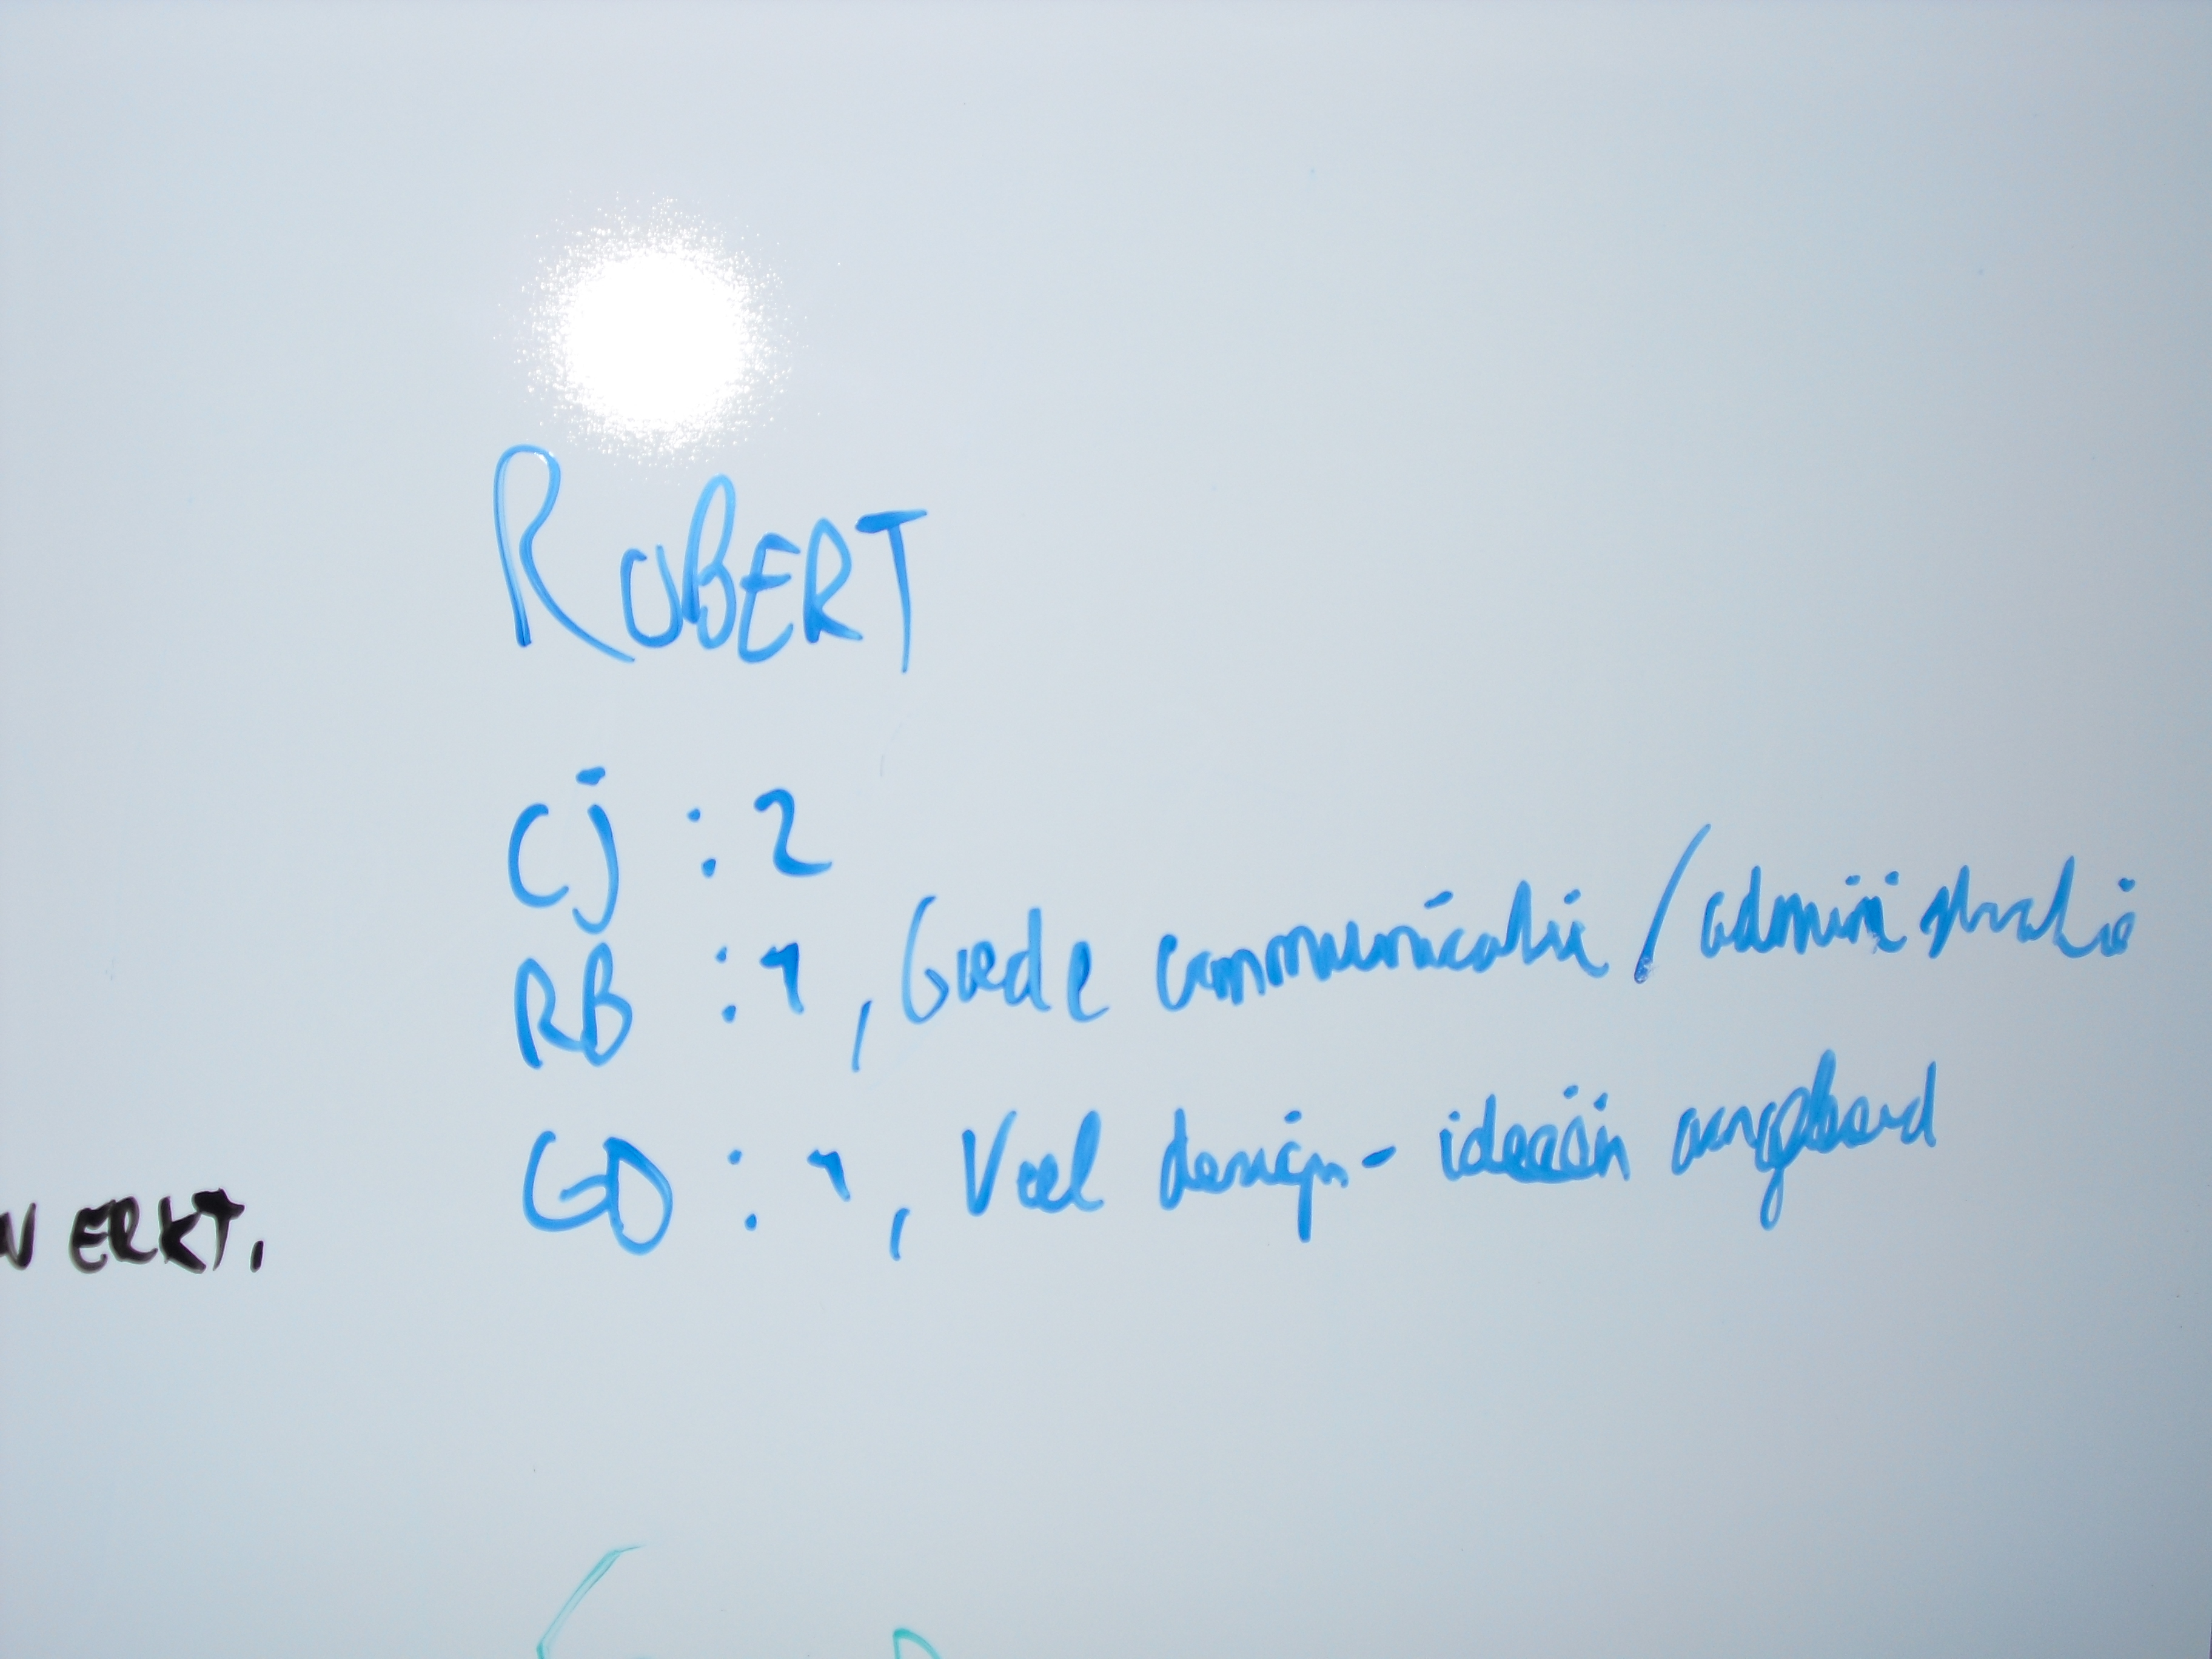 ROBERT
Cj : 2
RB : 1, Goede communicatie / administratie
GD : 1, Veel design-ideeën aangeleverd
WERKT.